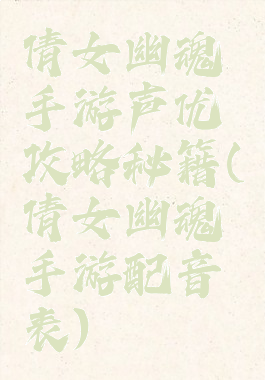 倩女幽魂
手游声优
攻略秘籍(
倩女幽魂
手游配音
表)